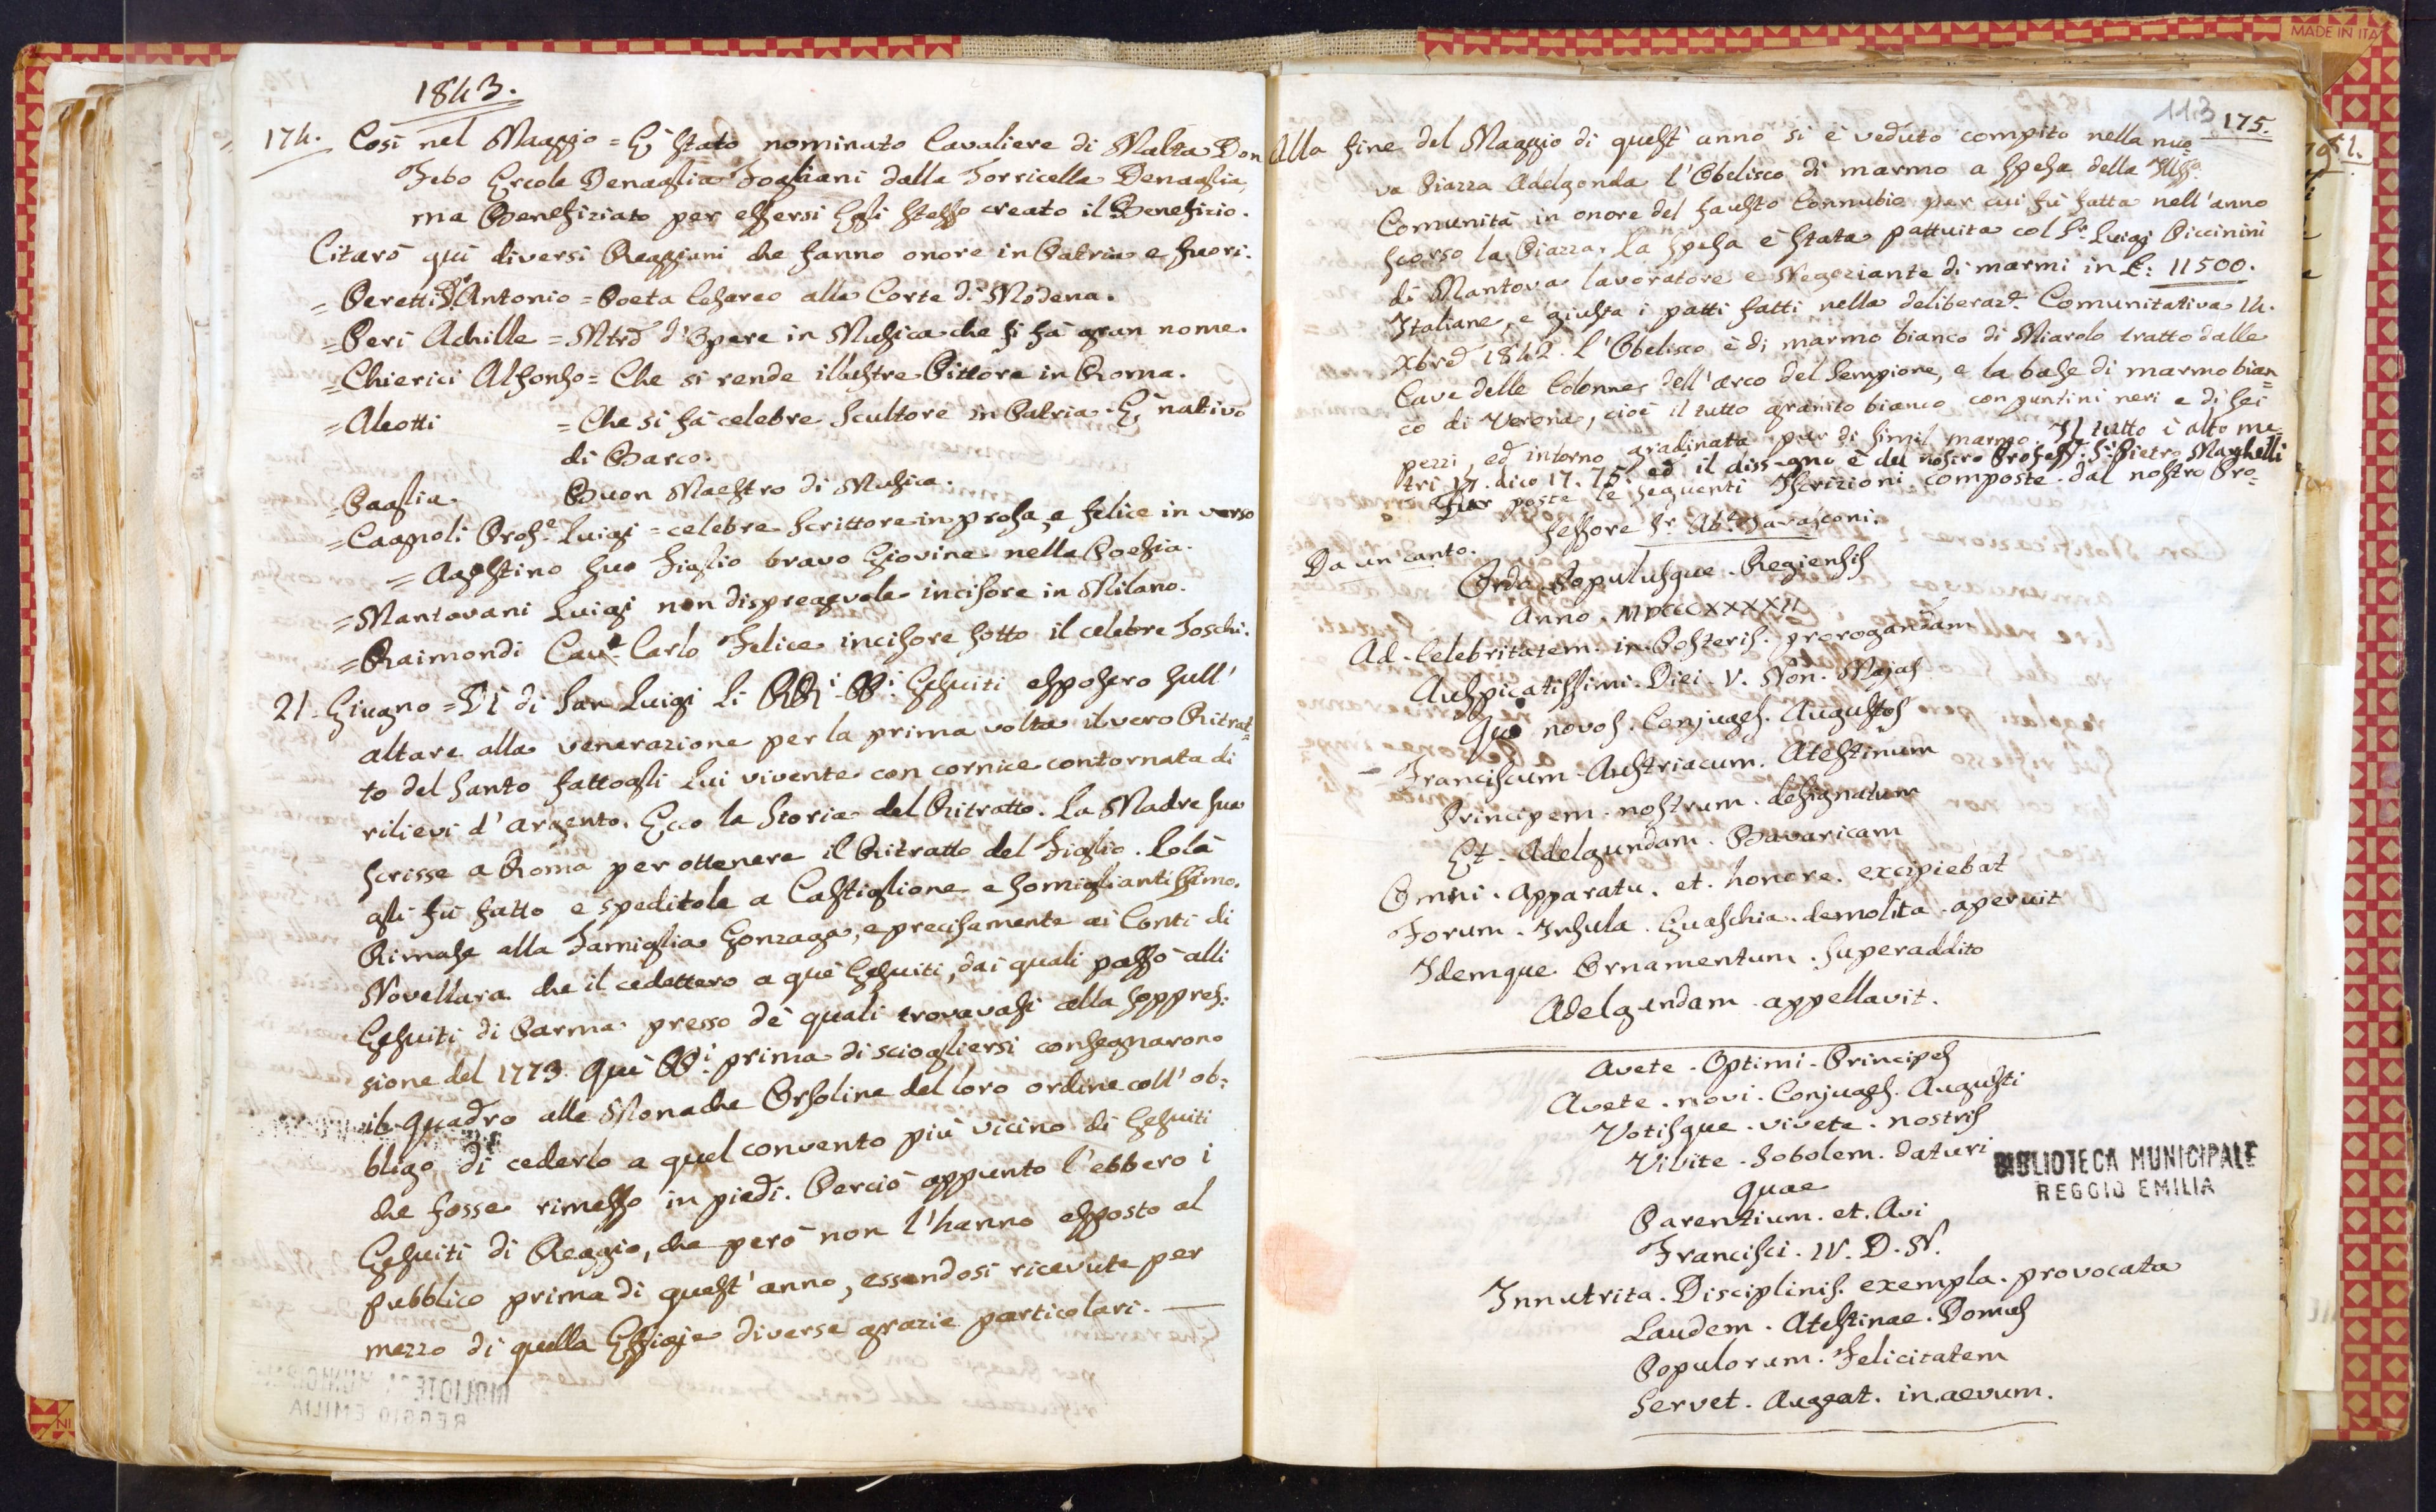 1843.
174. Così nel Maggio = È stato nominato Cavaliere di Malta Don
Febo Ercole Denaglia Fogliani dalla Torricella Denaglia,
ma Benefiziato per essersi Egli stesso creato il Benefizio.
Citerò quì diversi Reggiani che fanno onore in Patria e fuori.
= Peretti Dr. Antonio = Poeta Cesareo alla Corte di Modena.
= Peri Achille = Mtro d'Opere in Musica che si fà gran nome.
= Chierici Alfonso = Che si rende illustre Pittore in Roma.
= Aleotti = Che si fà celebre Scultore in Patria. È nativo
di Barco.
= Paglia Buon Maestro di Musica.
= Cagnoli Profe. Luigi = celebre Scrittore in prosa, e felice in verso
= Agostino suo Figlio bravo Giovine nella Poesia.
= Mantovani Luigi non dispregevole incisore in Milano.
= Raimondi Cave. Carlo Felice incisore sotto il celebre Toschi.
21. Giugno = Dì di San Luigi li RRi. PPi. Gesuiti esposero sull'
altare alla venerazione per la prima volta il vero Ritrat=
to del Santo fattogli Lui vivente con cornice contornata di
rilievi d'argento. Ecco la Storia del Ritratto. La Madre sua
scrisse a Roma per ottenere il Ritratto del Figlio. Colà
gli fù fatto e speditole a Castiglione e somigliantissimo.
Rimase alla Famiglia Gonzaga, e precisamente ai Conti di
Novellara che il cedettero a què Gesuiti, dai quali passò alli
Gesuiti di Parma presso dè quali trovavasi alla soppres=
sione del 1773. Què PPi. prima di sciogliersi consegnarono
il quadro alle Monache Orsoline del loro ordine coll'ob=
bligo di cederlo a quel convento più vicino di Gesuiti
che fosse rimesso in piedi. Perciò appunto l'ebbero i
Gesuiti di Reggio, che però non l'hanno esposto al
pubblico prima di quest'anno, essendosi ricevute per
mezzo di quella Effigie diverse grazie particolari. —
113
175.
Alla fine del Maggio di quest'anno si è veduto compito nella nuo=
va Piazza Adelgonda l'Obelisco di marmo a spesa della Illssa.
Comunità in onore del fausto Connubio per cui fù fatta nell'anno
scorso la Piazza. La spesa è stata pattuita col Sr. Luigi Piccinini
di Mantova lavoratore e Negoziante di marmi in L: 11500.
Italiane, e giusta i patti fatti nella deliberaze. Comunitativa 14.
Xbre 1842. L'Obelisco è di marmo bianco di Miarolo tratto dalle
Cave delle Colonne dell'arco del Sempione, e la base di marmo bian=
co di Verona, cioè il tutto granito bianco con puntini neri e di sei
pezzi, ed intorno gradinata pur di simil marmo. Il tutto è alto me=
tri 17. dico 17. 75. ed il disegno è del nostro Profess. Sr. Pietro Marchelli
Fur poste le seguenti Iscrizioni composte dal nostro Pro=
fessore Sr. Abe. Savasconi.
Da un canto.
Ordo. Populusque. Regiensis
Anno. MDCCCXXXXII
Ad. Celebritatem. in. Posteris. prorogandam
Auspicatissimi. Diei. V. Non. Majas
Quo novos. Conjuges. Augustos
Franciscum. Austriacum. Atestinum
Principem. nostrum. designatum
Et. Adelgundam. Bavaricam
Omni. apparatu. et. honore. excipiebat
Forum. Insula. Guaschia. demolita. aperuit
Idemque Ornamentum. superaddito
Adelgundam. appellavit.
Avete. Optimi. Principes
Avete. novi. Conjuges. Augusti
Votisque. vivete. nostris
Vivite. Sobolem. daturi
quae
Parentium. et. Avi
Francisci. IV. D. N.
Innutrita. Disciplinis. exempla. provocata
Laudem. Atestinae. Domus
Populorum. Felicitatem
Servet. Augeat. in. aevum.
BIBLIOTECA MUNICIPALE
REGGIO EMILIA
MADE IN ITA